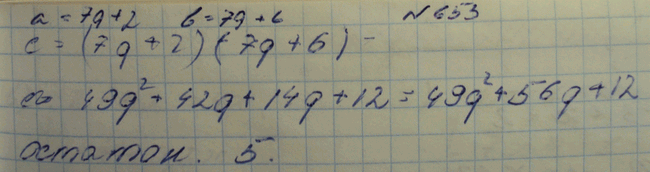 a = 7q + 2 b = 7q + 6 №653
c = (7q + 2)(7q + 6) =
49q² + 42q + 14q + 12 = 49q² + 56q + 12
остаток. 5.